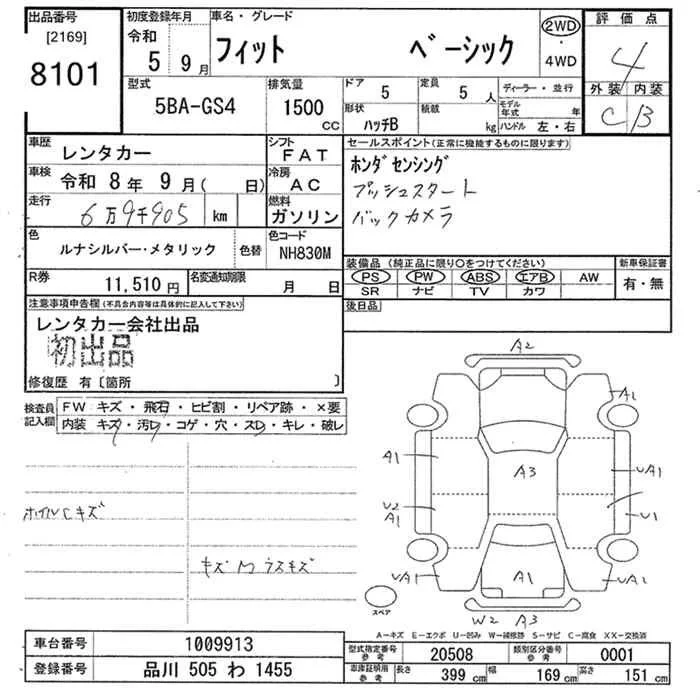 出品番号 初度登録年月 車名・グレード 2WD 評価点
[2169] 令和 ・
8101 5 9月 フィット ベーシック 4WD 4
型式 排気量 ドア 5 定員 5人 ディーラー・並行 外装 内装
5BA-GS4 1500 CC 形状 ハッチB 積載 kg モデル年式 年 C B
ハンドル 左・右
車歴 レンタカー シフト FAT セールスポイント(正常に機能するものに限ります)
車検 令和 8年 9月( 日) 冷房 AC ホンダセンシング
走行 6万9千905 km 燃料 ガソリン プッシュスタート
バックカメラ
色 ルナシルバー・メタリック 色替 色コード NH830M
装備品(純正品に限り○をつけてください) 新車保証書
PS PW ABS エアB AW 有・無
SR ナビ TV カワ
R券 11,510円 名変通知期限 月 日
後日品
注意事項申告欄(不具合内容等は具体的に記入して下さい)
レンタカー会社出品
初出品
修復歴 有〔箇所 〕
検査員記入欄 FW キズ・飛石・ヒビ割・リペア跡・×要
内装 キズ・汚レ・コゲ・穴・スレ・キレ・破レ
ホイルCキズ
キズM ラスキズ
A2
A1
A1 A3 UA1
U2 A1 U1
UA1 A1 UA1
スペア
W2 A3
A-キズ E-エクボ U-凹み W-補修跡 S-サビ C-腐食 XX-交換済
車台番号 1009913 型式指定番号参考 20508 類別区分番号参考 0001
登録番号 品川 505 わ 1455 車庫証明用参考 長さ 399 cm 幅 169 cm 高さ 151 cm